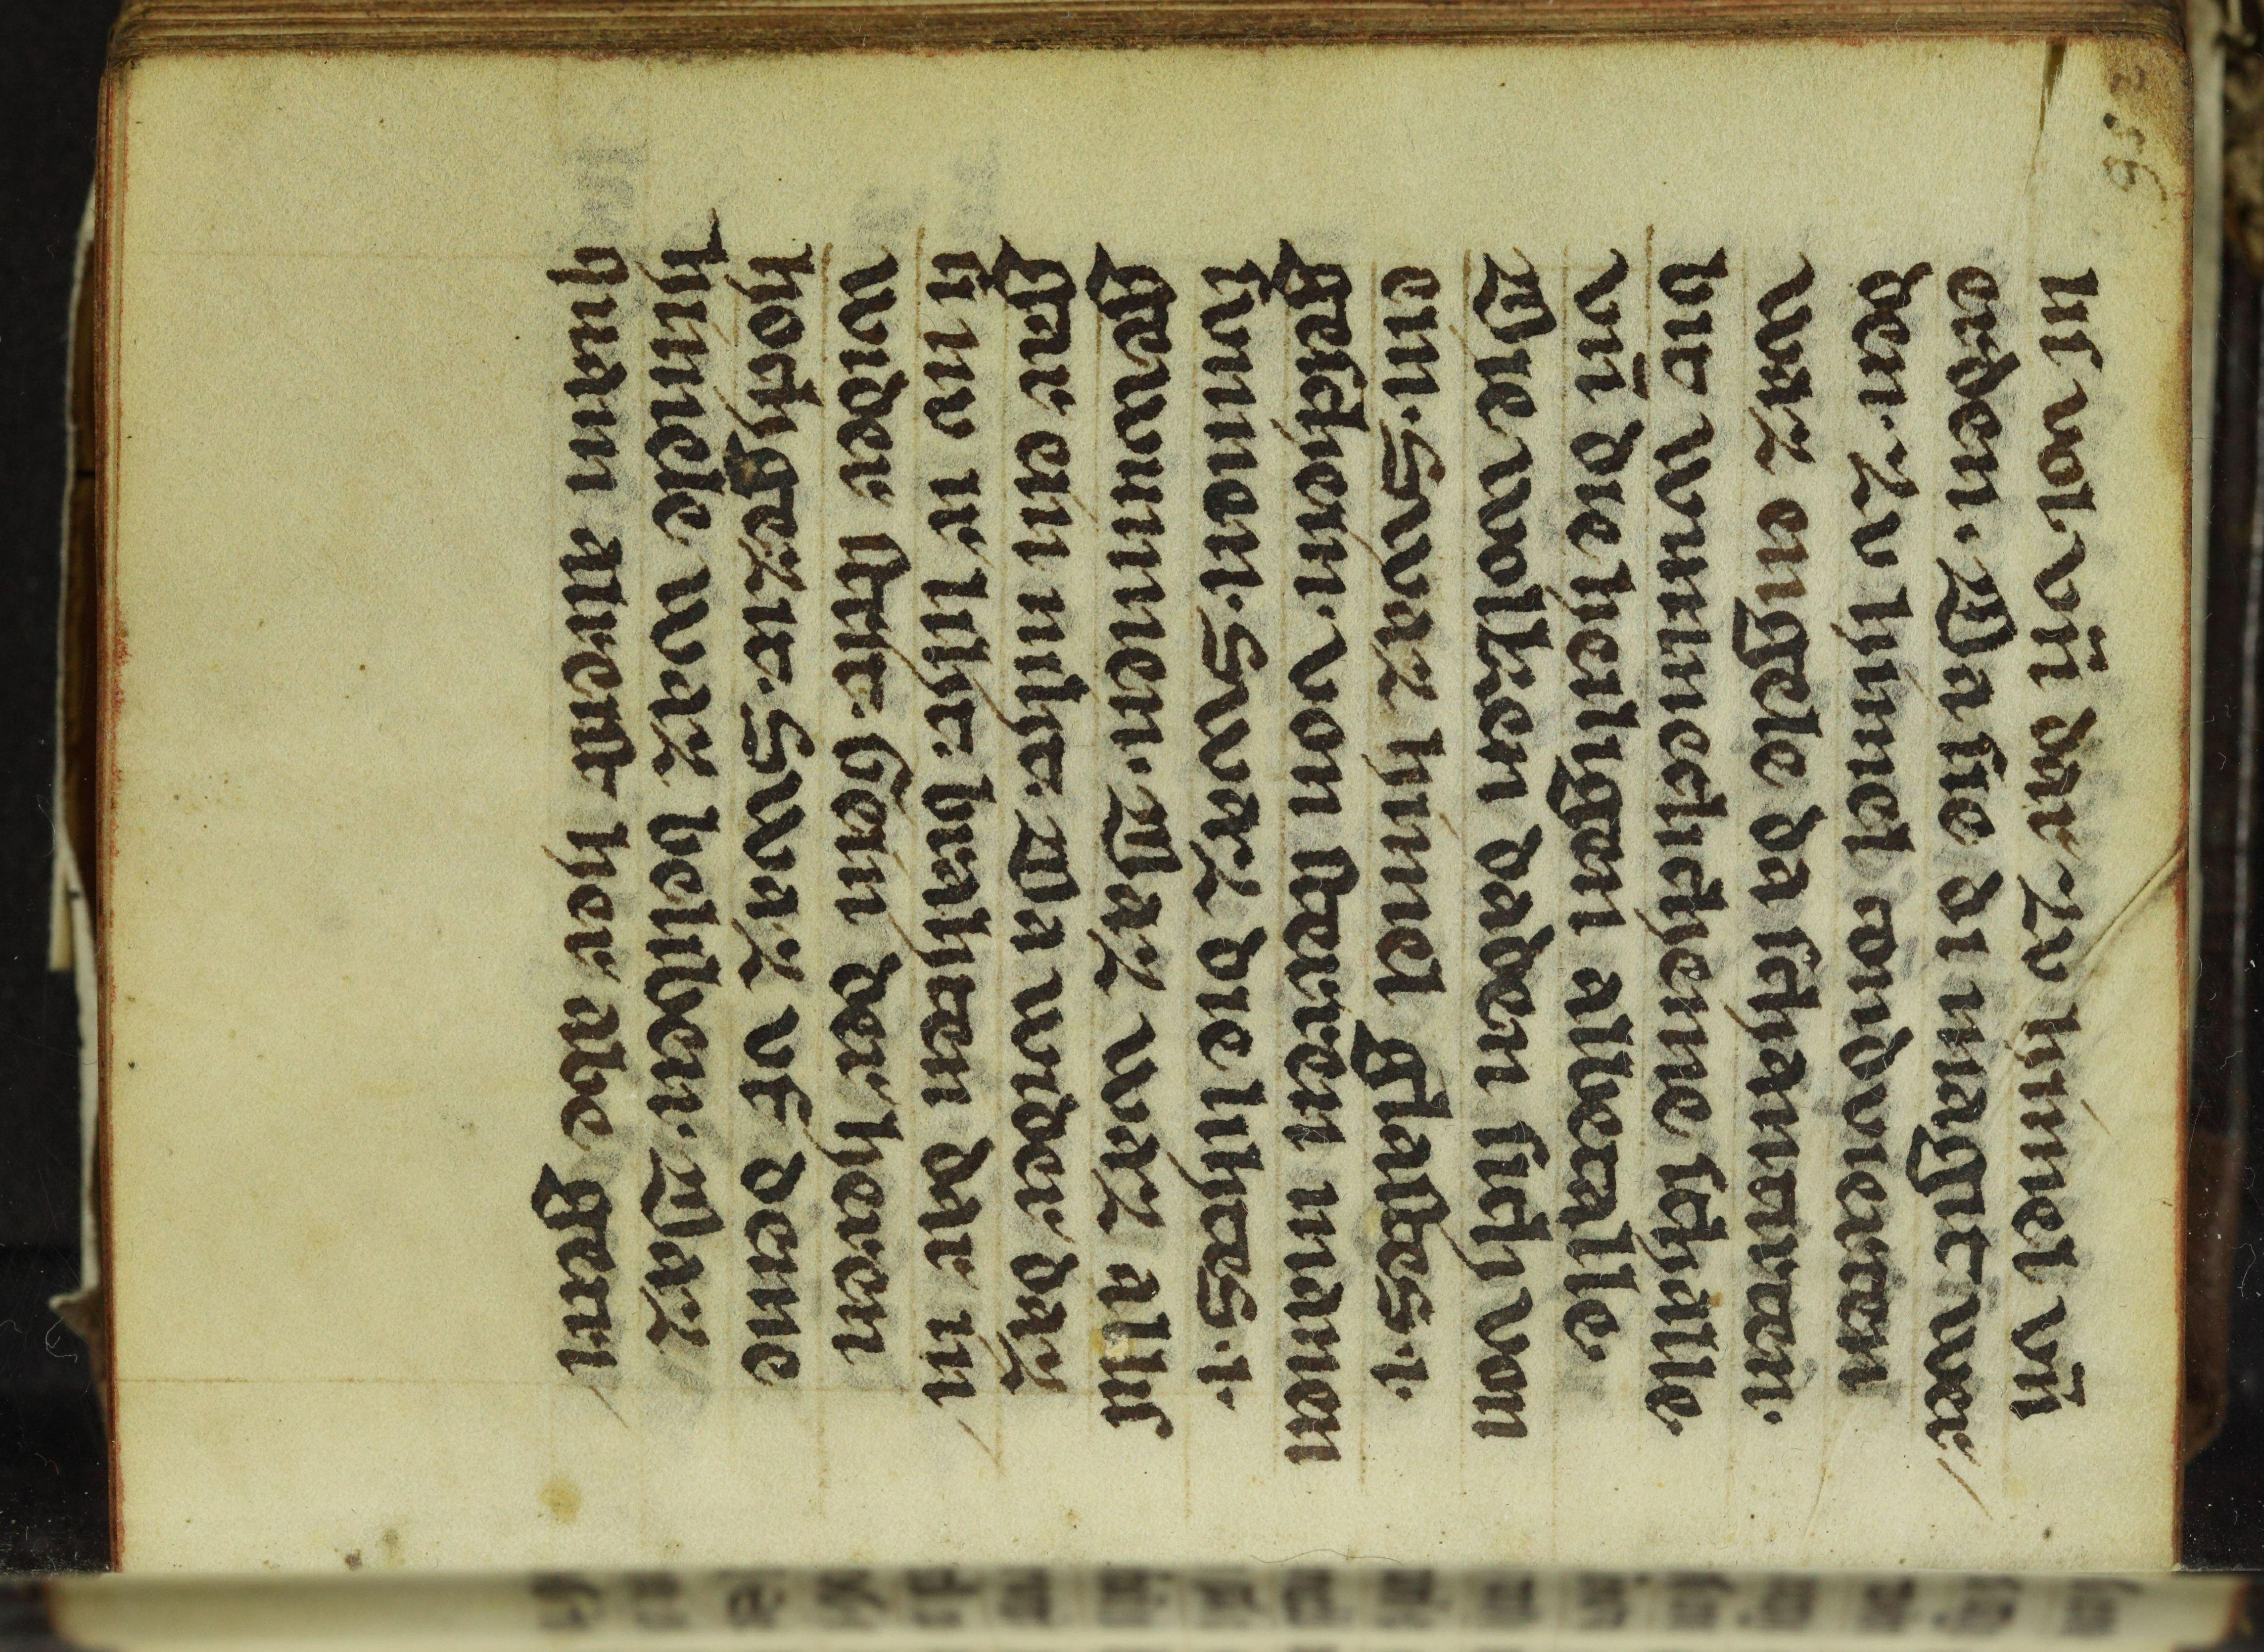 95
lis vol vn̄ dar zv himel vn̄
erden. Da sie di magt wer/
den. zv himel condvierten
waz engele da schanttven.
bit wnneclicheme schalle.
vn̄ die heiligen alletalle.
Die wolken daden sich von
ein. Swaz himel glastes. i.
geschein. von steiren manen
svnnen. Swaz die lihtes. i.
gewunnen. Daz waz allis
gar ein niht. Da wider daz
nv ir liht. brahten dar in/
wider strit. Gein der heren
hochgezit. Swaz vf deme
himele waz beliben. Daz
quam alrerst her abe gein/